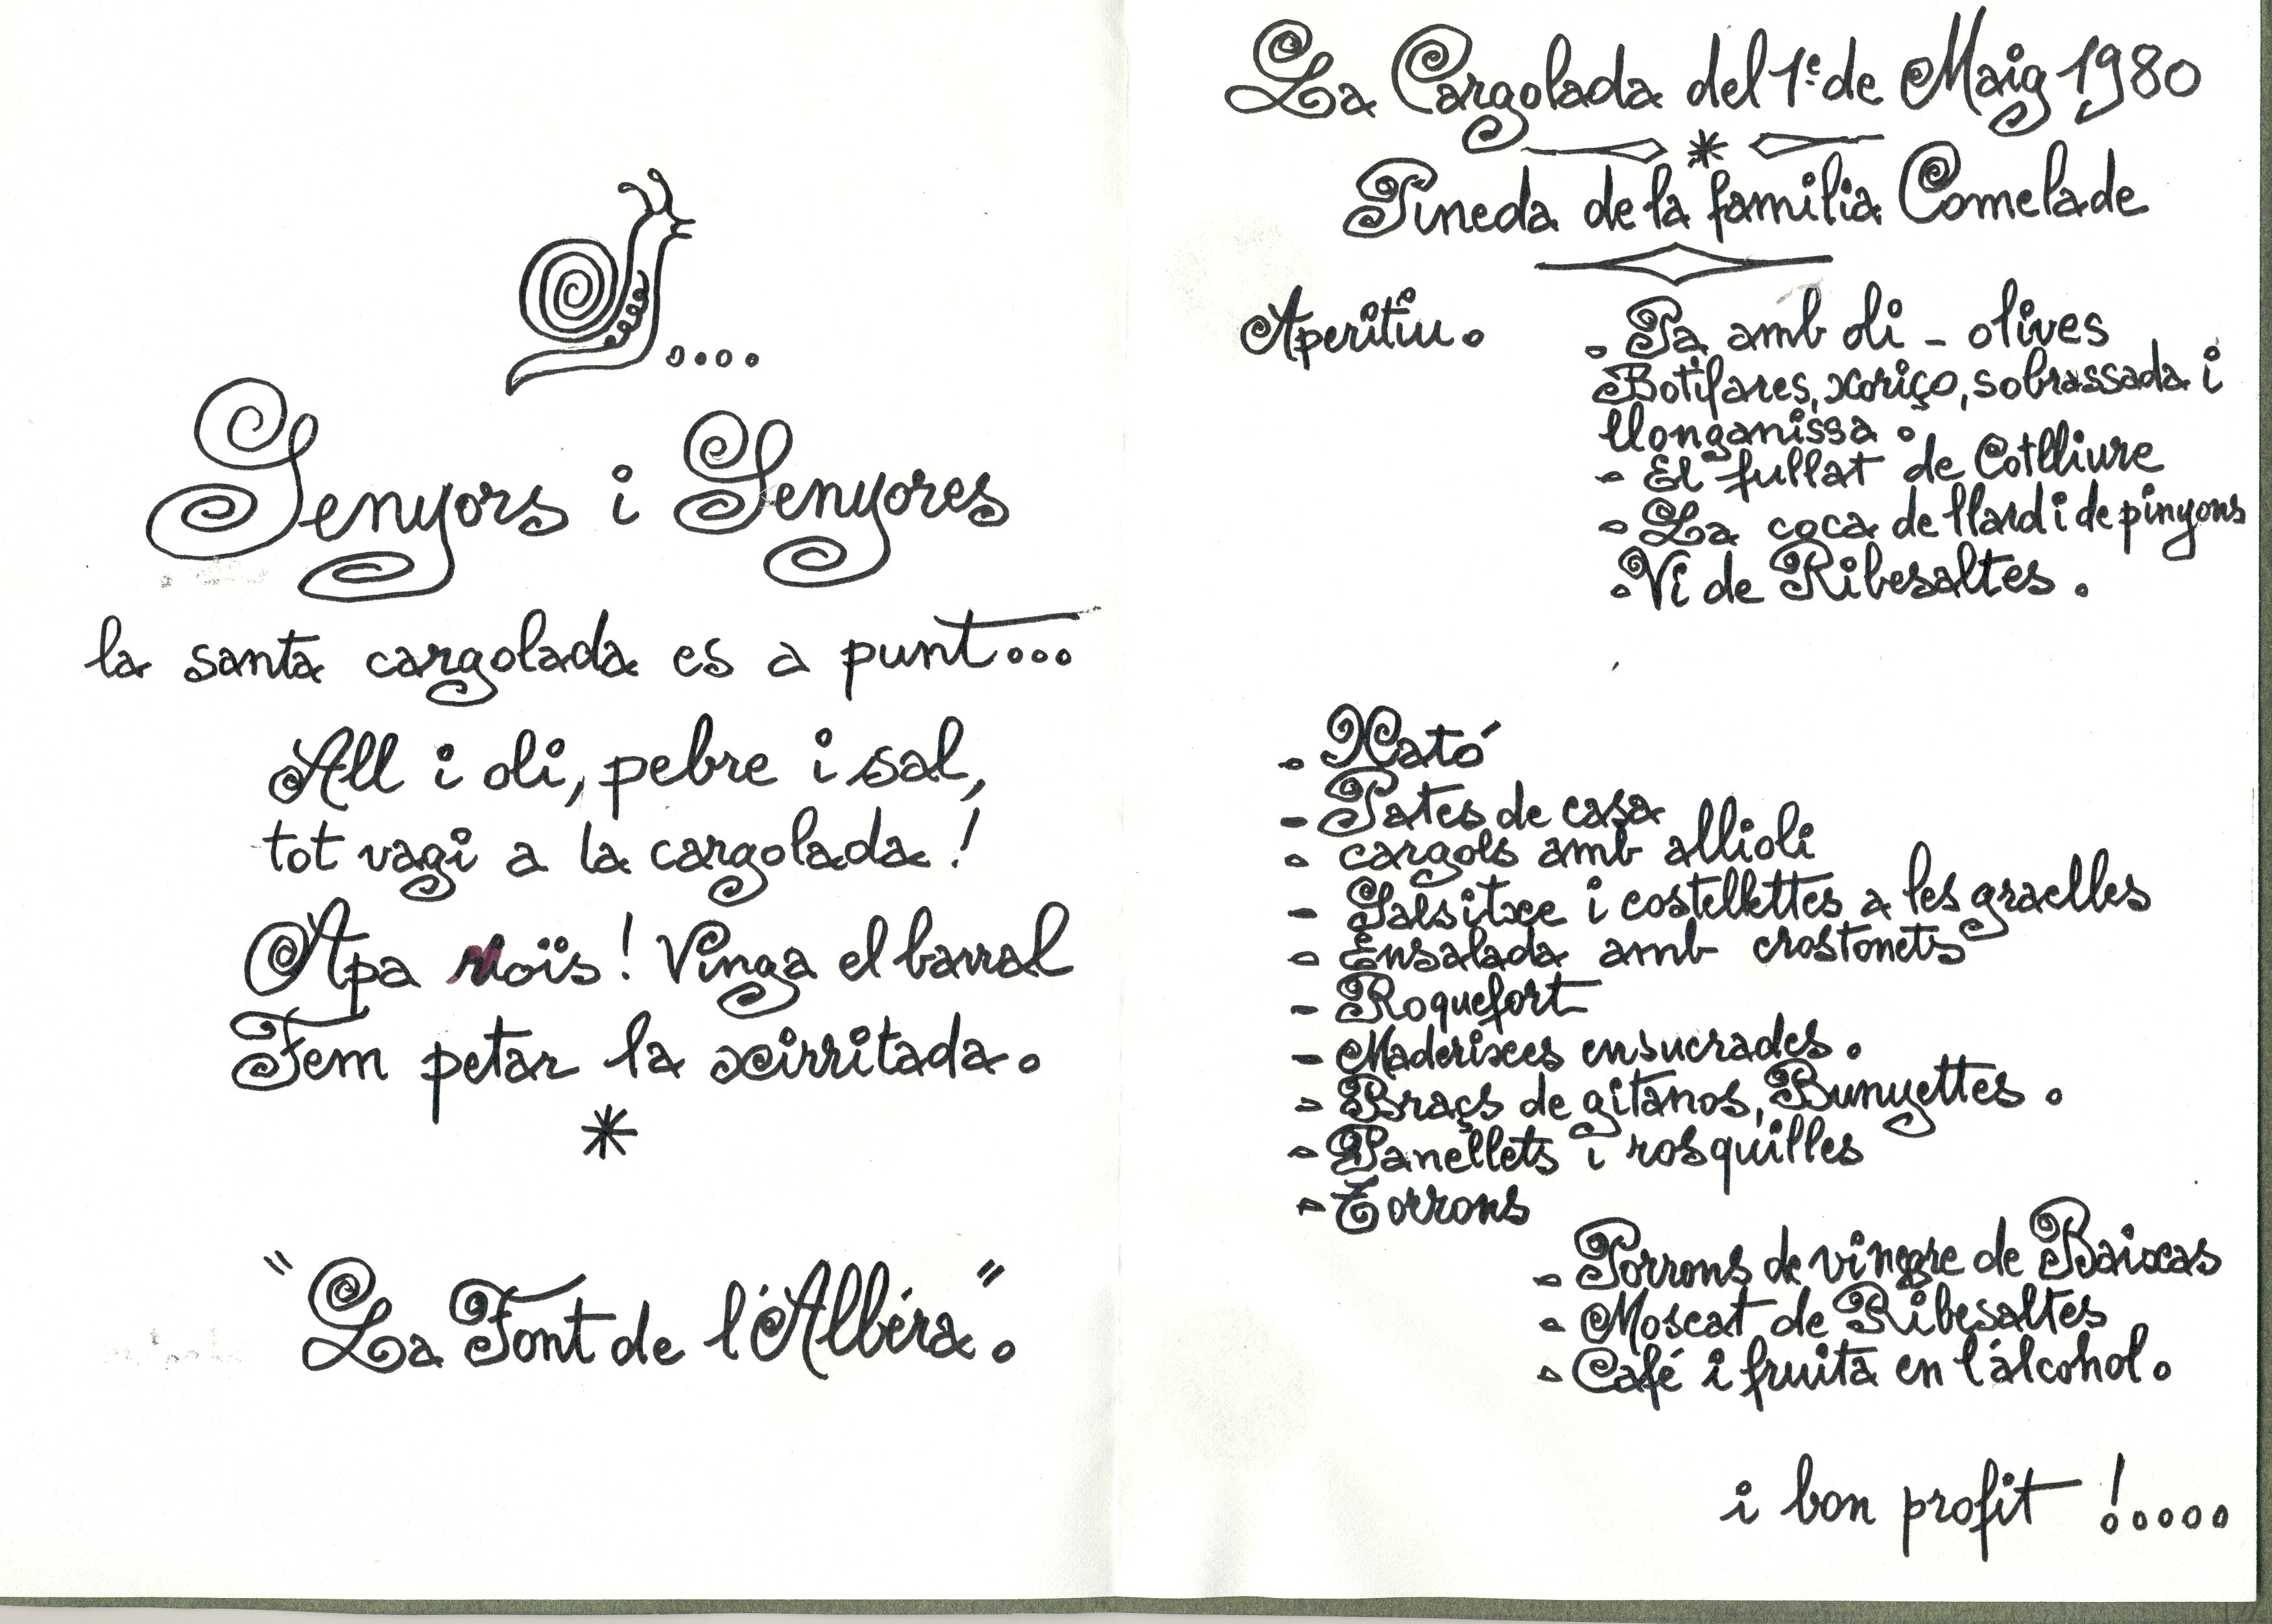 Senyors i Senyores
la santa cargolada es a punt...
All i oli, pebre i sal,
tot vagi a la cargolada!
Apa noïs! Vinga el barral
Fem petar la xirritada.
*
"La Font de l'Albéra".
La Cargolada del 1e de Maig 1980
*
Pineda de la familia Comelade
Aperitiu. - Pa amb oli - olives
Botifares, xoriço, sobrassada i
llonganissa.
- El fullat de Cotlliure
- La coca de llard i de pinyons
- Vi de Ribesaltes.
- Xató
- Pates de casa
- cargols amb allioli
- Salsitxe i costellettes a les graelles
- Ensalada amb crostonets
- Roquefort
- Maderixes ensucrades.
- Braçs de gitanos, Bunyettes.
- Panellets i rosquilles
- Torrons
- Porrons de vinegre de Baixas
- Moscat de Ribesaltes
- Café i fruita en l'alcohol.
i bon profit !.....